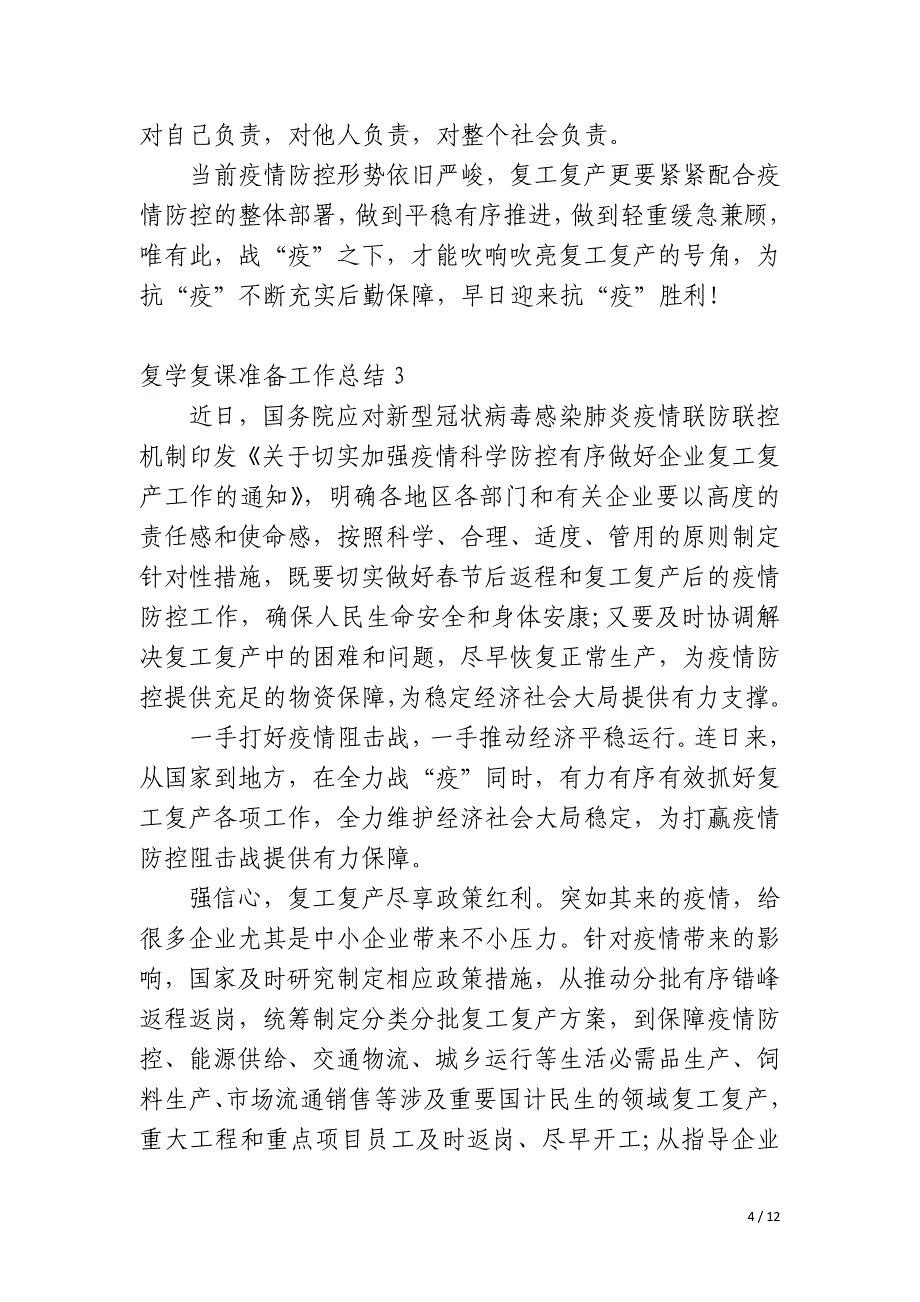 对自己负责，对他人负责，对整个社会负责。
当前疫情防控形势依旧严峻，复工复产更要紧紧配合疫
情防控的整体部署，做到平稳有序推进，做到轻重缓急兼顾，
唯有此，战“疫”之下，才能吹响吹亮复工复产的号角，为
抗“疫”不断充实后勤保障，早日迎来抗“疫”胜利！
复学复课准备工作总结 3
近日，国务院应对新型冠状病毒感染肺炎疫情联防联控
机制印发《关于切实加强疫情科学防控有序做好企业复工复
产工作的通知》，明确各地区各部门和有关企业要以高度的
责任感和使命感，按照科学、合理、适度、管用的原则制定
针对性措施，既要切实做好春节后返程和复工复产后的疫情
防控工作，确保人民生命安全和身体安康；又要及时协调解
决复工复产中的困难和问题，尽早恢复正常生产，为疫情防
控提供充足的物资保障，为稳定经济社会大局提供有力支撑。
一手打好疫情阻击战，一手推动经济平稳运行。连日来，
从国家到地方，在全力战“疫”同时，有力有序有效抓好复
工复产各项工作，全力维护经济社会大局稳定，为打赢疫情
防控阻击战提供有力保障。
强信心，复工复产尽享政策红利。突如其来的疫情，给
很多企业尤其是中小企业带来不小压力。针对疫情带来的影
响，国家及时研究制定相应政策措施，从推动分批有序错峰
返程返岗，统筹制定分类分批复工复产方案，到保障疫情防
控、能源供给、交通物流、城乡运行等生活必需品生产、饲
料生产、市场流通销售等涉及重要国计民生的领域复工复产，
重大工程和重点项目员工及时返岗、尽早开工；从指导企业
4 / 12